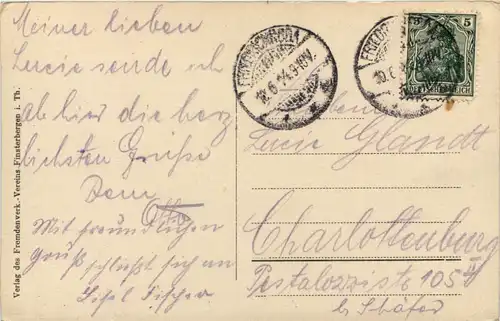 Meiner lieben
Lucie sende ich
ab hier die herz
lichsten Grüße
Dein
Otto
Mit freundlichen
Gruß schließt sich an
Fischer
Verlag des Fremdenverk.-Vereins Finsterbergen i. Th.
FRIEDRICHRODA
10.6.14.9-10V.
FRIEDRICHRODA
10.6.
5
DEUTSCHES REICH
Lucie Glandt
Charlottenburg
Pestalozzistr 105
b. Schäfer